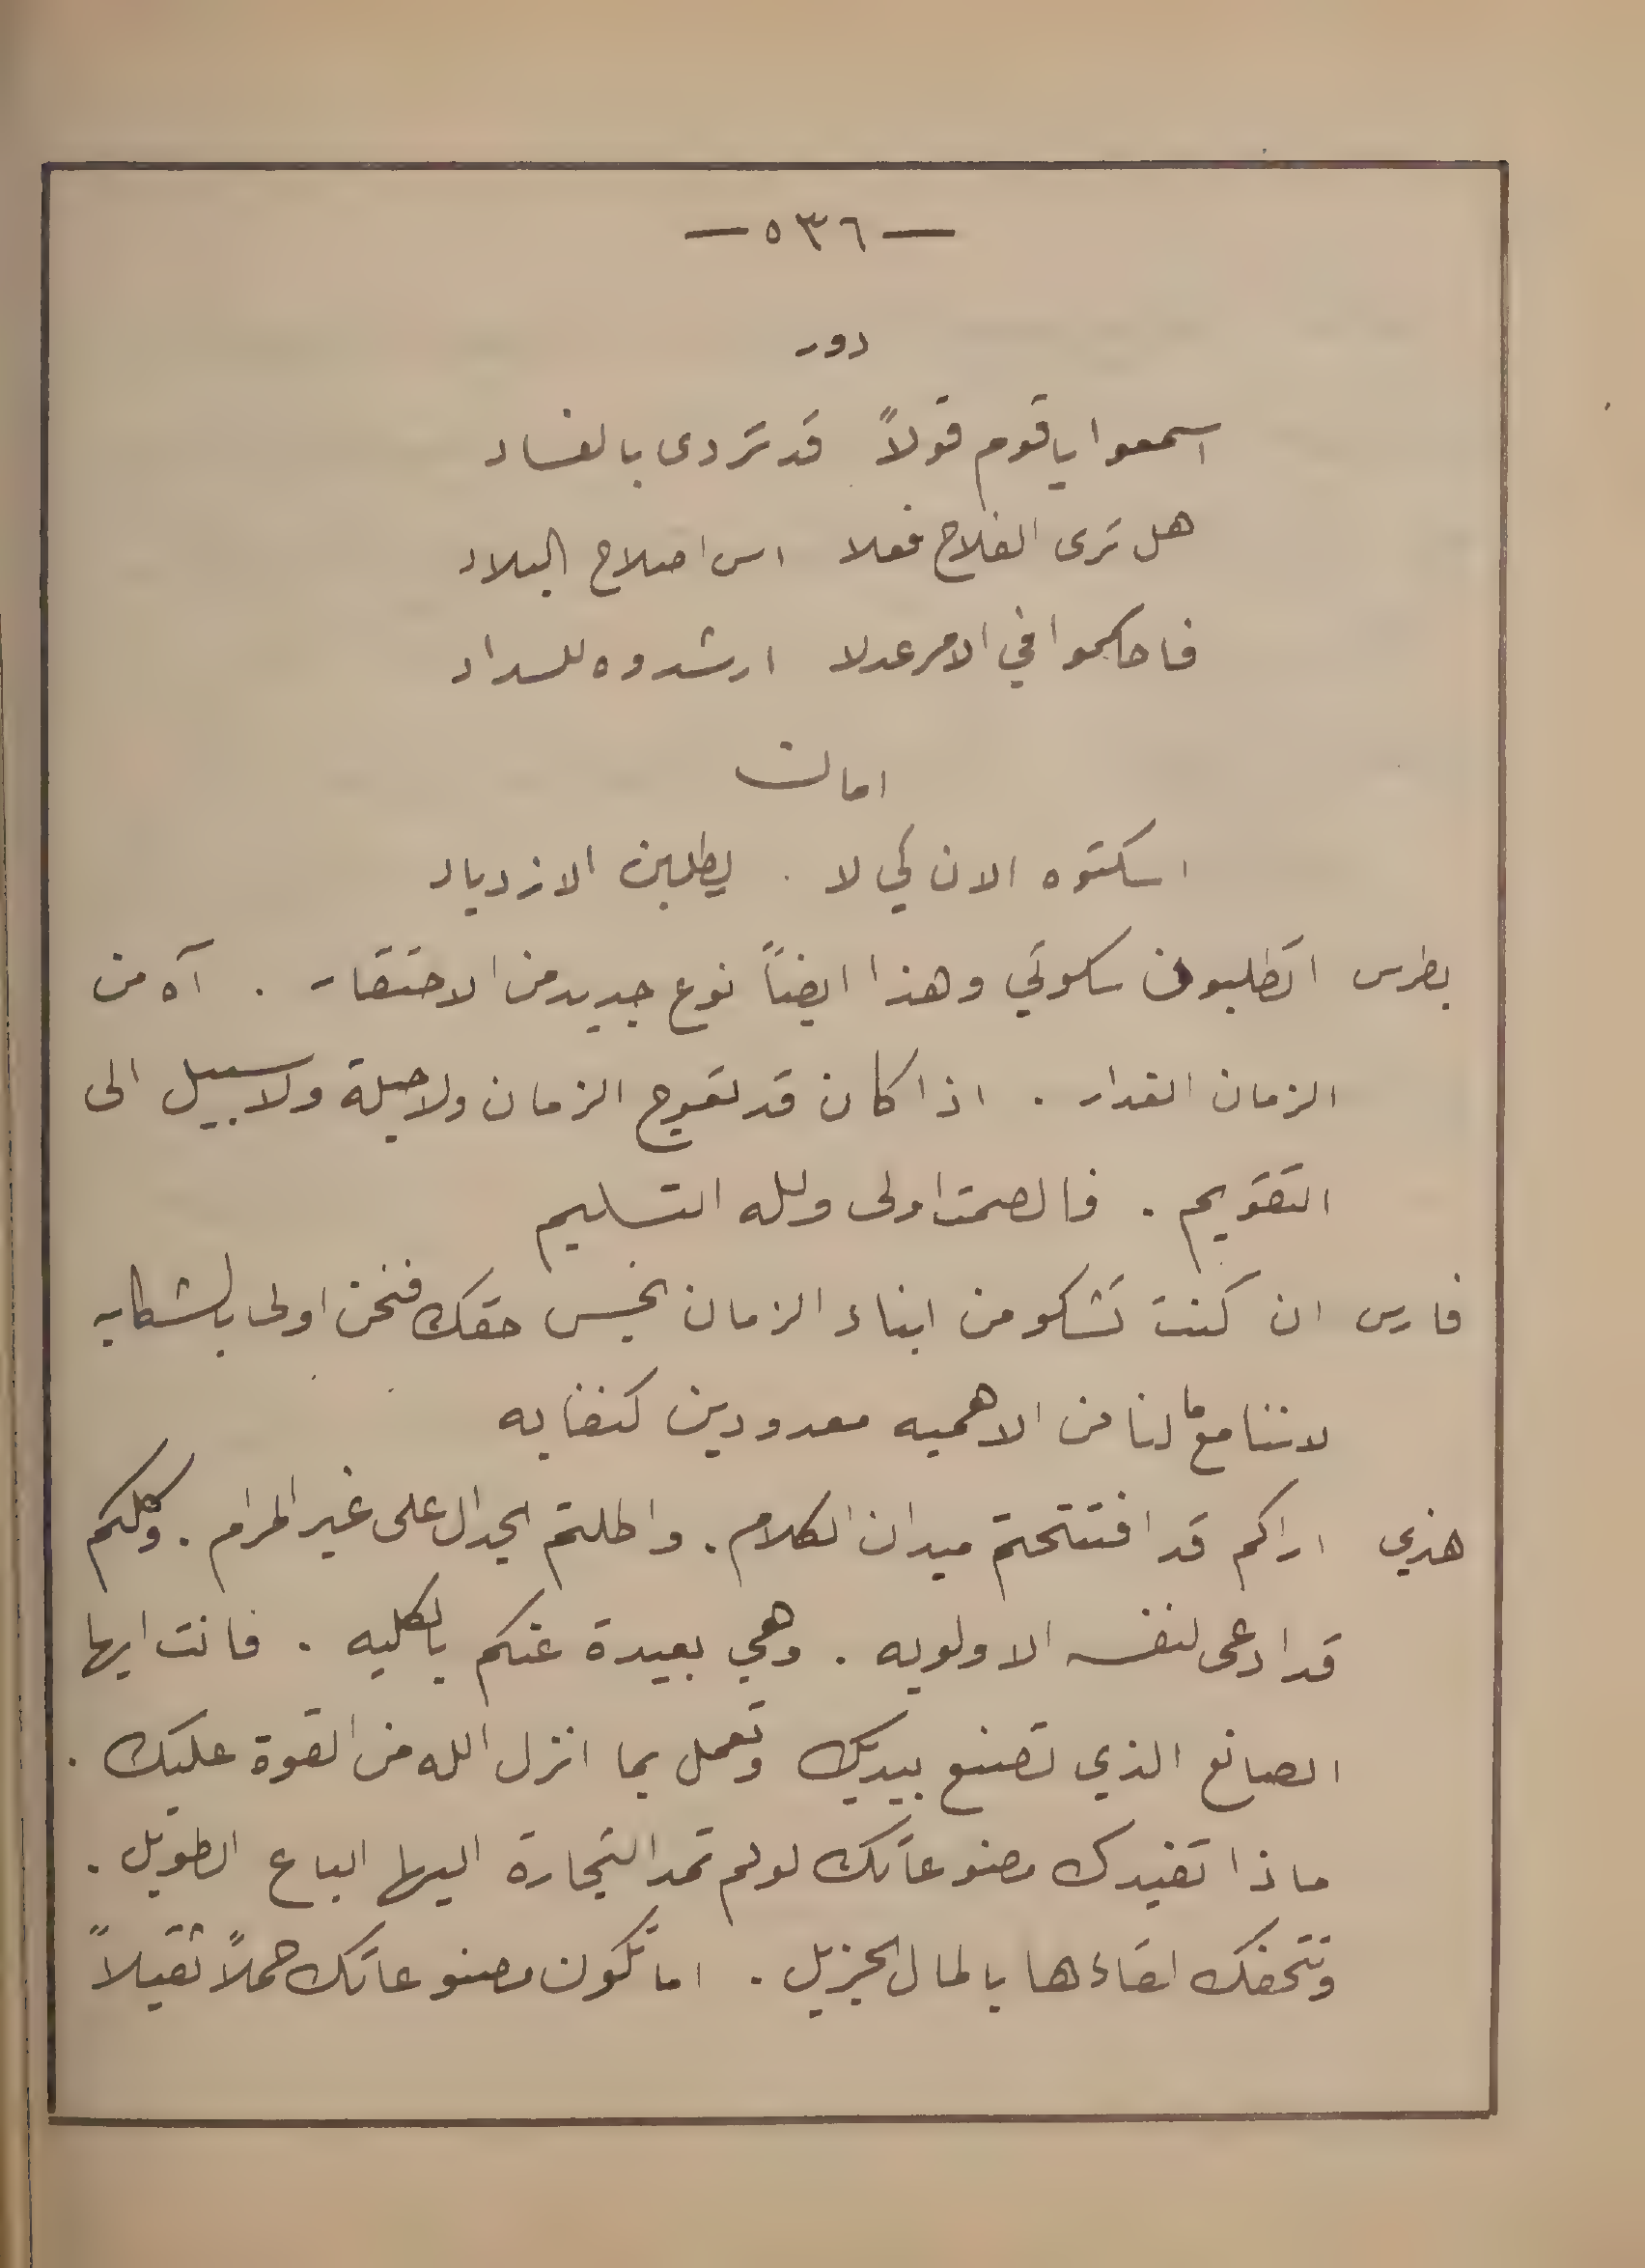 — ٥٣٦ —
دور
اسمعوا ياقوم قولاً قد تردى بالفساد
هل ترى الفلاح فعلا اس اصلاح البلاد
فاحكموا في الامر عدلا ارشدوه للسداد
امان
اسكتوه الان كي لا . يطلبن الازدياد
بطرس اتطلبون سكوتي وهذا ايضاً نوع جديد من الاحتقار . آه من
الزمان الغدار . اذا كان قد تعوج الزمان ولا حيلة ولا سبيل الى
التقويم . فالصمت اولى ولله التسليم
فارس ان كنت تشكو من ابناء الزمان بخس حقك فنحن اولى بالشكايه
لاننا مع ما لنا من الاهميه معدودين كنفايه
هذي اراكم قد افتتحتم ميدان الكلام . واطلتم الجدال على غير المرام . وكلكم
قد ادعى لنفسه الاولويه . وهي بعيدة عنكم بالكليه . فانت ايها
الصانع الذي تصنع بيديك وتعمل بما انزل الله من القوة عليك .
ماذا تفيدك مصنوعاتك لو لم تمد التجارة اليها الباع الطويل .
وتتحفك لقاءها بالمال الجزيل . اما تكون مصنوعاتك حملاً ثقيلاً